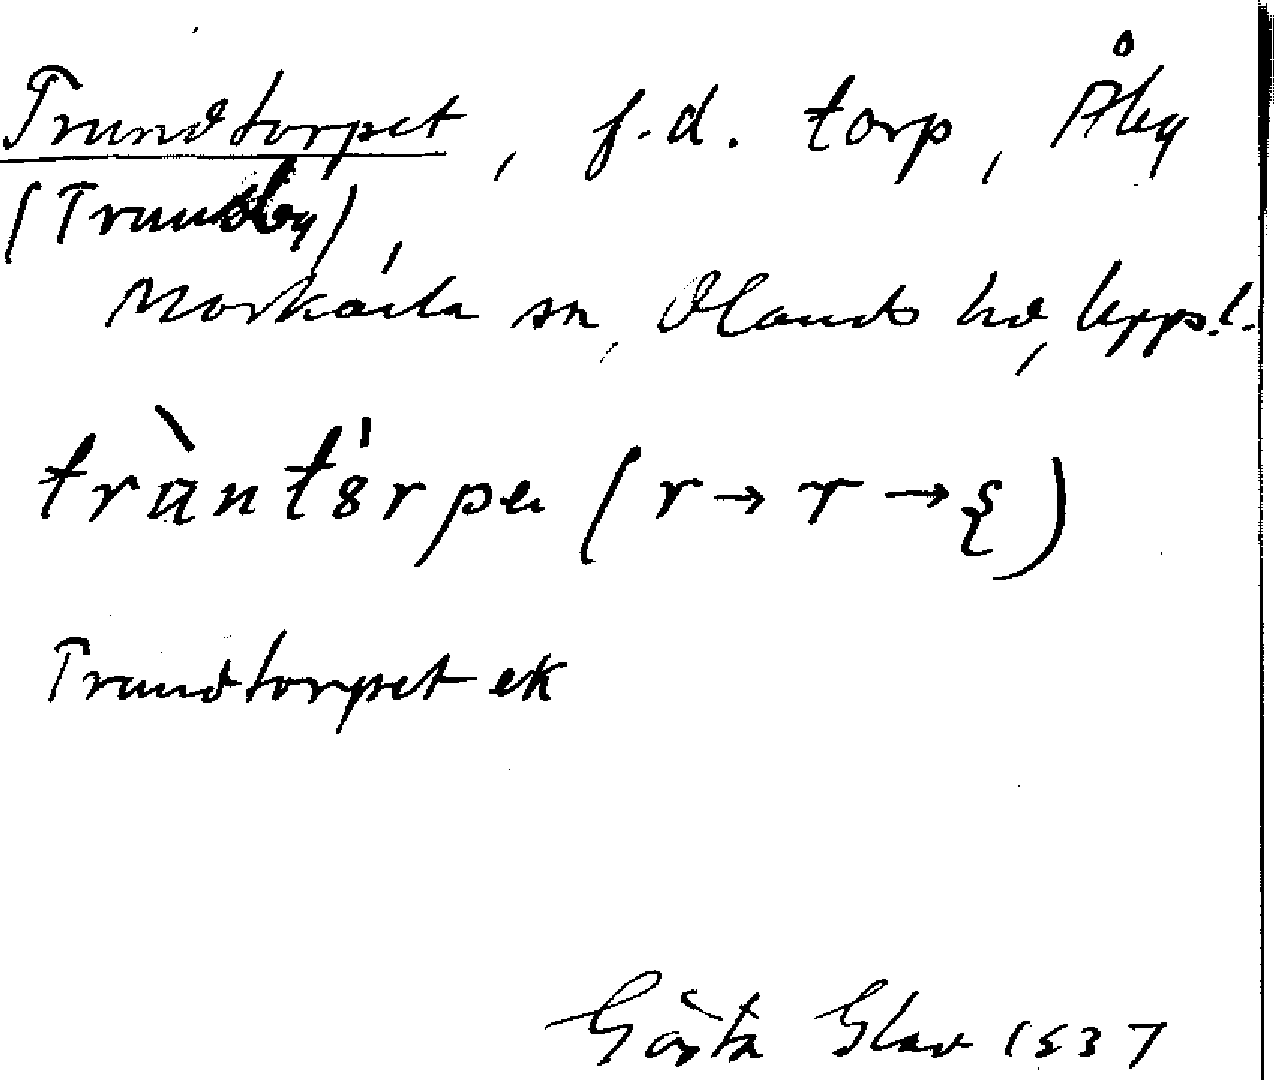 Trundtorpet, f.d. torp, Åby
(Trundby),
Morkarla sn, Olands hd, Uppsl.
tràntȣrpe (r → r → )
Trundtorpet ek
Gösta Glav 1937